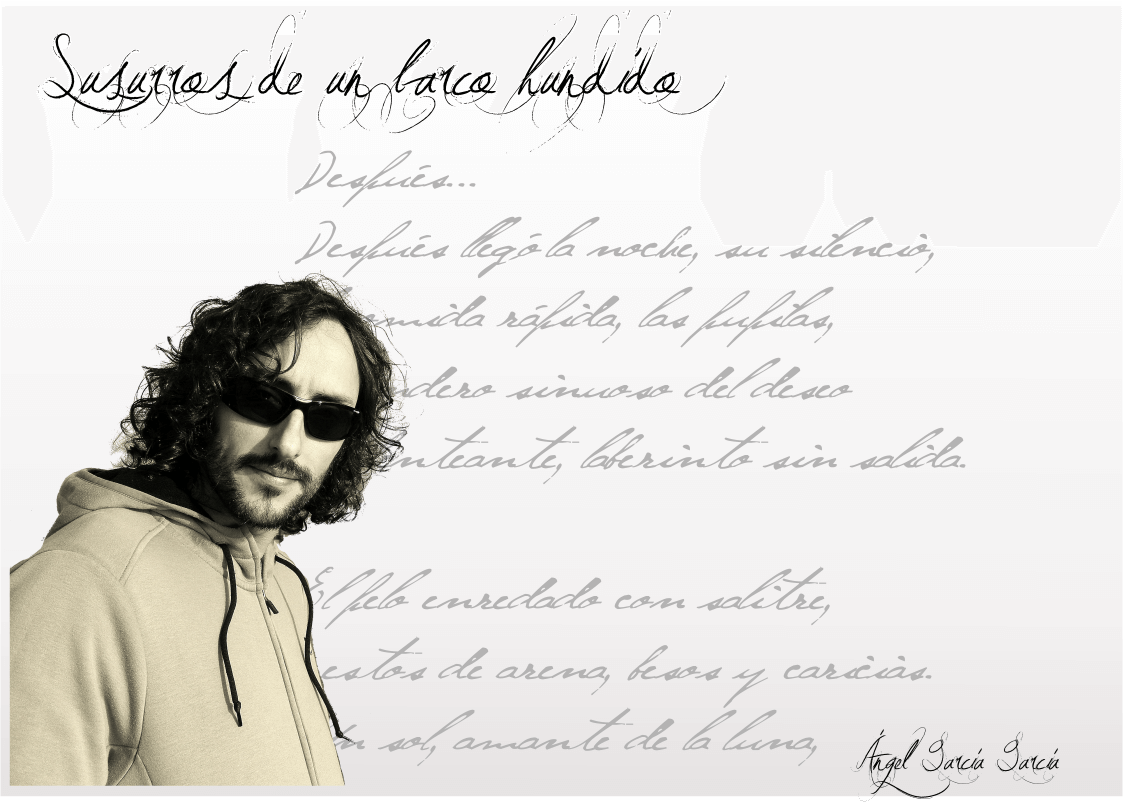 Susurros de un barco hundido
Después...
Después llegó la noche, su silencio,
rápida, las pupilas,
sinuoso del deseo
laberinto sin salida.
El pelo enredado con salitre,
de arena, besos y caricias.
sol, amante de la luna,
Ángel García García